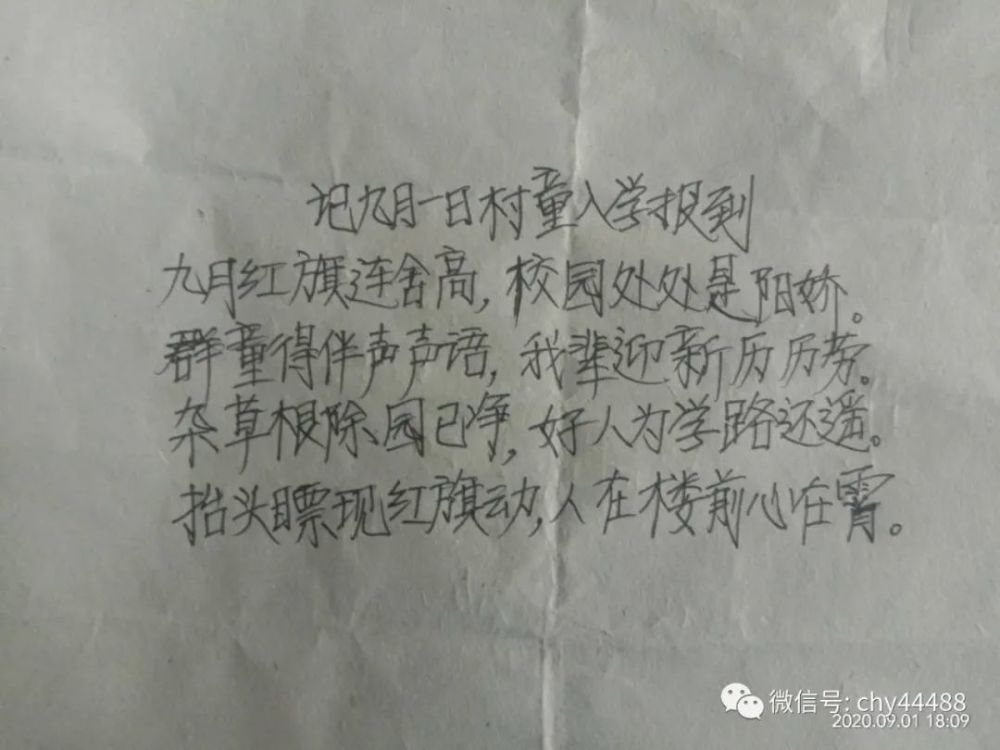 记九月一日村童入学报到
九月红旗连舍高,校园处处是阳娇。
群童得伴声声语,我辈迎新历历劳。
杂草根除园已净,好人为学路还遥。
抬头瞟现红旗动,人在楼前心在霄。
微信号: chy44488
2020.09.01 18:09